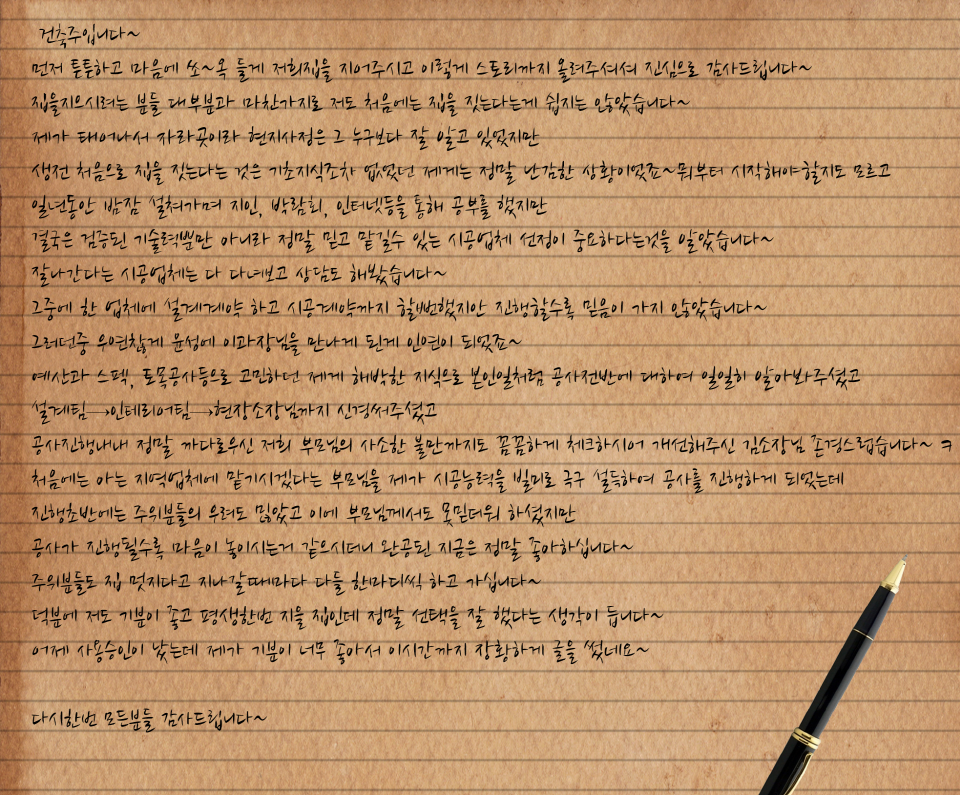 건축주입니다~
먼저 튼튼하고 마음에 쏘~옥 들게 저희집을 지어주시고 이렇게 스토리까지 올려주셔셔 진심으로 감사드립니다~
집을지으시려는 분들 대부분과 마찬가지로 저도 처음에는 집을 짓는다는게 쉽지는 않았습니다~
제가 태어나서 자라곳이라 현지사정은 그 누구보다 잘 알고 있었지만
생전 처음으로 집을 짓는다는 것은 기초지식조차 없었던 제게는 정말 난감한 상황이었죠~뭐부터 시작해야할지도 모르고
일년동안 밤잠 설쳐가며 지인, 박람회, 인터넷등을 통해 공부를 했지만
결국은 검증된 기술력뿐만 아니라 정말 믿고 맡길수 있는 시공업체 선정이 중요하다는것을 알았습니다~
잘나간다는 시공업체는 다 다녀보고 상담도 해봤습니다~
그중에 한 업체에 설계계약 하고 시공계약까지 할뻔했지만 진행할수록 믿음이 가지 않았습니다~
그러던중 우연찮게 윤성에 이과장님을 만나게 된게 인연이 되었죠~
예산과 스펙, 토목공사등으로 고민하던 제게 해박한 지식으로 본인일처럼 공사전반에 대하여 일일히 알아봐주셨고
설계팀→인테리어팀→현장소장님까지 신경써주셨고
공사진행내내 정말 까다로우신 저희 부모님의 사소한 불만까지도 꼼꼼하게 체크하시어 개선해주신 김소장님 존경스럽습니다~ ㅋ
처음에는 아는 지역업체에 맡기시겠다는 부모님을 제가 시공능력을 빌미로 극구 설득하여 공사를 진행하게 되었는데
진행초반에는 주위분들의 우려도 많았고 이에 부모님께서도 못믿더워 하셨지만
공사가 진행될수록 마음이 놓이시는거 같으시더니 완공된 지금은 정말 좋아하십니다~
주위분들도 집 멋지다고 지나갈때마다 다들 한마디씩 하고 가십니다~
덕분에 저도 기분이 좋고 평생한번 지을 집인데 정말 선택을 잘 했다는 생각이 듭니다~
어제 사용승인이 났는데 제가 기분이 너무 좋아서 이시간까지 장황하게 글을 썼네요~
다시한번 모든분들 감사드립니다~